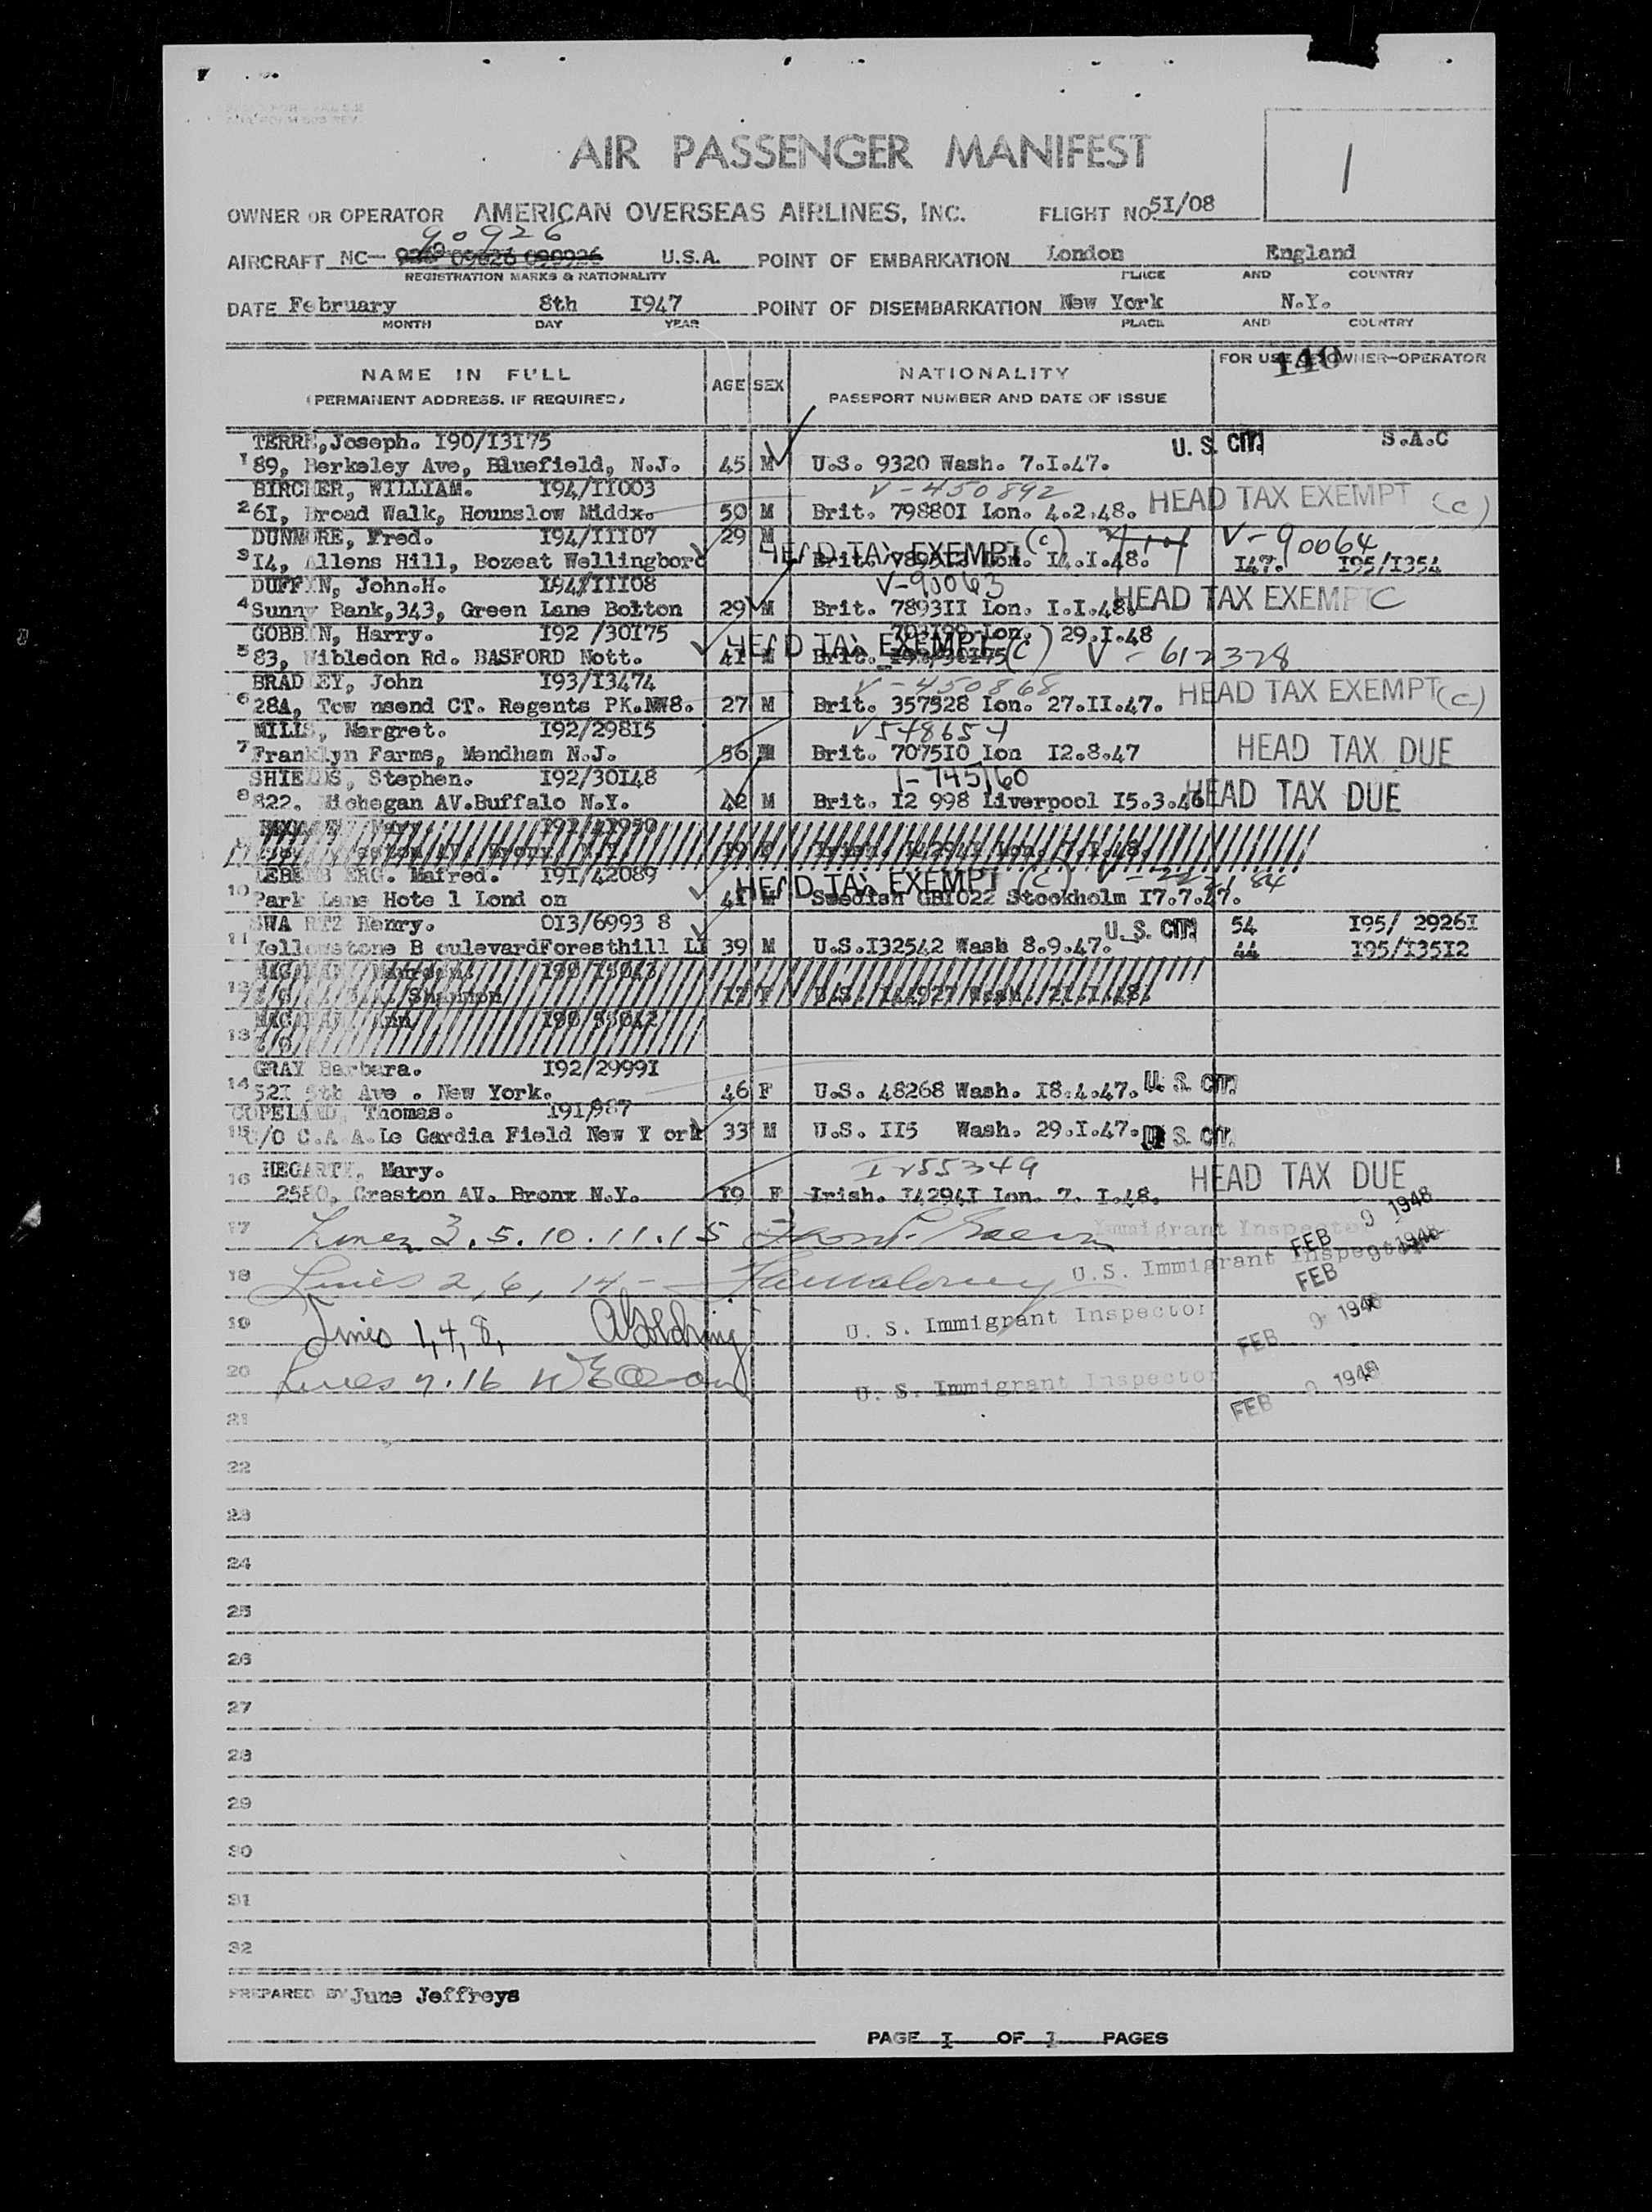 AIR PASSENGER MANIFEST
1
OWNER OR OPERATOR AMERICAN OVERSEAS AIRLINES, INC. FLIGHT NO 5I/08
90926
AIRCRAFT NC- U.S.A. POINT OF EMBARKATION London England
REGISTRATION MARKS & NATIONALITY PLACE AND COUNTRY
DATE February 8th I947 POINT OF DISEMBARKATION New York N.Y.
MONTH DAY YEAR PLACE AND COUNTRY
NAME IN FULL AGE SEX NATIONALITY FOR USE OF OWNER-OPERATOR
140
(PERMANENT ADDRESS. IF REQUIRED) PASSPORT NUMBER AND DATE OF ISSUE
Joseph. I90/I3I75 U.S. CIT. S.A.C
1 89, Berkeley Ave, Bluefield, N.J. 45 M U.S. 9320 Wash. 7.I.47.
BIRCHER, WILLIAM. I94/II003 V-450892 HEAD TAX EXEMPT (C)
2 6I, Broad Walk, Hounslow Middx. 50 M Brit. 79880I Lon. 4.2.48.
DUNMORE, Fred. I94/III07 29 M HEAD TAX EXEMPT (C) V-90064
3 I4, Allens Hill, Bozeat Wellingboro Brit. Lon. I4.I.48. I47. I95/I354
DUFFIN, John.H. I94/III08 V-90063 HEAD TAX EXEMPT C
4 Sunny Bank,343, Green Lane Bolton 29 M Brit. 7893II Lon. I.I.48.
GOBBIN, Harry. I92 /30I75 HEAD TAX EXEMPT (C) Lon. 29.I.48
5 83, Wibledon Rd. BASFORD Nott. 41 M Brit. V-612328
BRADLEY, John I93/I3474 V-450868 HEAD TAX EXEMPT (C)
6 28A, Tow nsend CT. Regents PK.NW8. 27 M Brit. 357528 Lon. 27.II.47.
MILLS, Margret. I92/298I5 V548654
7 Franklyn Farms, Mendham N.J. 56 Brit. 7075I0 Lon I2.8.47 HEAD TAX DUE
SHIELDS, Stephen. I92/30I48 I-745160
8 822. Michegan AV.Buffalo N.Y. 42 M Brit. I2 998 Liverpool I5.3.46 HEAD TAX DUE
Mafred. I9I/42089 HEAD TAX EXEMPT (C)
10 Park Lane Hote l Lond on 41 M Swedish GBI022 Stockholm I7.7.47.
Henry. OI3/6993 8 U.S. CIT. 54 I95/ 2926I
11 Yellowstone B oulevardForesthill LI 39 M U.S.I32542 Wash 8.9.47. 44 I95/I35I2
12
13
GRAY Barbara. I92/2999I
14 52I 5th Ave . New York. 46 F U.S. 48268 Wash. I8.4.47. U. S. CIT.
COPELAND, Thomas. I9I/987
15 C/O C.A A.Le Gardia Field New Y ork 33 M U.S. II5 Wash. 29.I.47. U. S. CIT.
16 HEGARTY, Mary. I255349 HEAD TAX DUE
2580, Craston AV. Bronx N.Y. I9 F Irish. I4294I Lon. 7. I.48.
17 Lines 3.5.10.11.15 Immigrant Inspector FEB 9 1948
18 Lines 2, 6, 14 - U.S. Immigrant Inspector FEB 9 1948
19 Lines 1,4,8, U. S. Immigrant Inspector FEB 9 1948
20 Lines 7.16 U. S. Immigrant Inspector FEB 9 1948
21
22
23
24
25
26
27
28
29
30
31
32
PREPARED BY June Jeffreys
PAGE I OF I PAGES